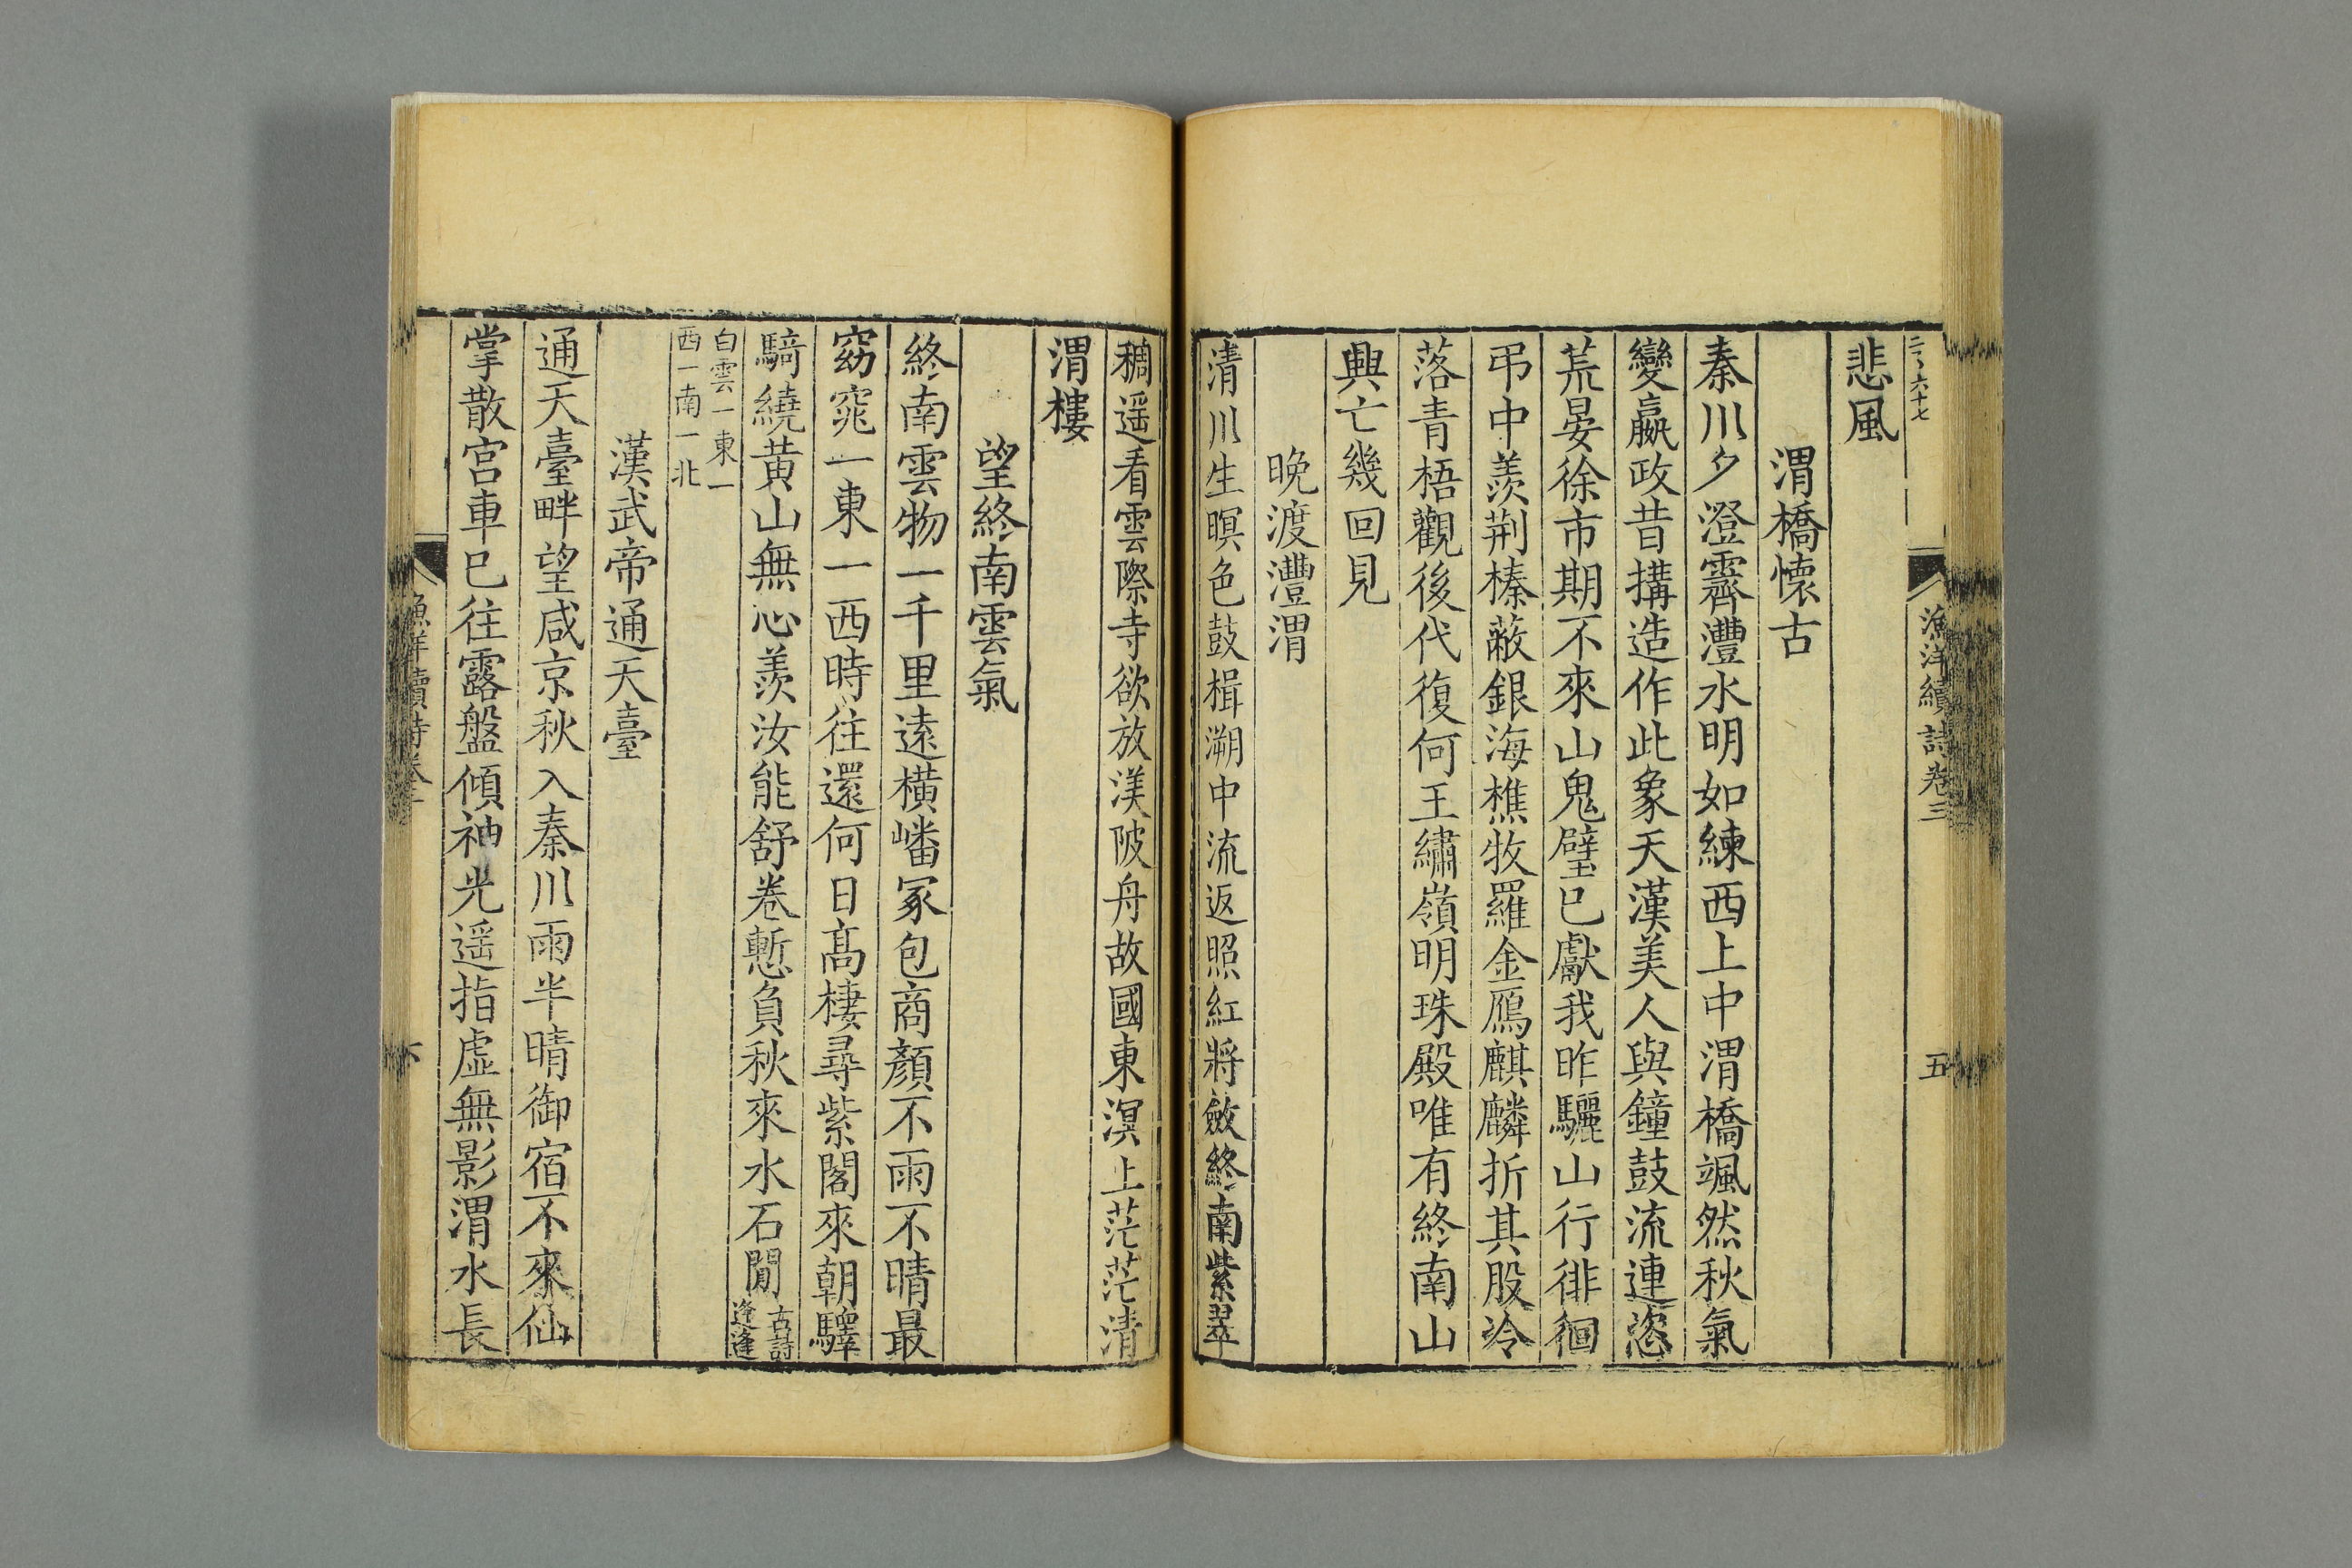 漁洋續詩卷三
五
悲風
渭橋懐古
秦川夕澄霽灃水明如練西上中渭橋颯然秋氣
變嬴政昔搆造作此象天漢美人與鐘鼓流連恣
荒晏徐市期不來山鬼璧已獻我昨驪山行徘徊
弔中羨荆榛蔽銀海樵牧羅金鴈麒麟折其股泠
落青梧觀後代復何王繡嶺明珠殿唯有終南山
興亡幾回見
晚渡灃渭
清川生暝色鼓楫溯中流返照紅將斂終南紫翠
稠遥看雲際寺欲放渼陂舟故國東溟上茫茫清
渭樓
望終南雲氣
終南雲物一千里遠橫嶓冢包商顏不雨不晴最
窈窕一東一西時往還何日髙棲尋紫閣來朝驛
騎繞黄山無心羨汝能舒卷慙負秋來水石閒古詩逢逢
白雲一東一西一南一北
漢武帝通天臺
通天臺畔望咸京秋入秦川雨半晴御宿不來仙
掌散宫車已往露盤傾神光遥指虚無影渭水長